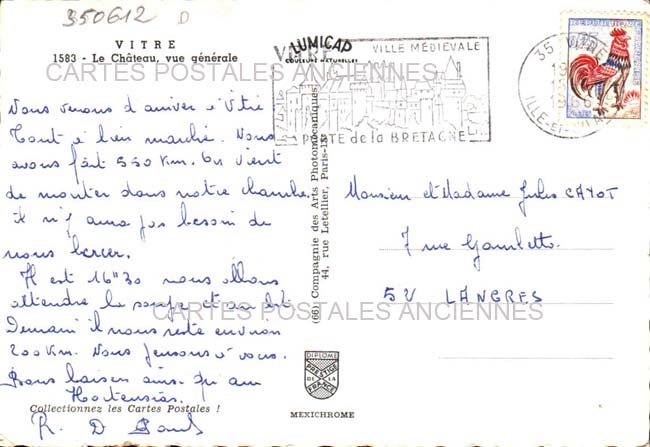 350612 D
VITRE
1583 - Le Château, vue générale
LUMICAP
COULEURS NATURELLES
CARTES POSTALES ANCIENNES
Nous venons d'arriver à Vitré
Tout à bien marché. Nous
avons fait 550 Km. On vient
de monter dans notre chambre
il n'y aura pas besoin de
nous bercer.
Il est 16h30 nous allons
attendre la soupe et au lit
Demain il nous reste environ
200 Km. Nous pensons à vous.
Bons baisers ainsi qu'aux
Hortensias.
R. D
Collectionnez les Cartes Postales !
(66) Compagnie des Arts Photomécaniques
44, rue Letellier, Paris-15e
DIPLOME
PRESTIGE
DE LA
FRANCE
MEXICHROME
VITRE
VILLE MÉDIÉVALE
PORTE de la BRETAGNE
35 VITRE
ILLE-ET-VILAINE
Monsieur et Madame Jules CAYOT
7 rue Gambetta
52 LANGRES
CARTES POSTALES ANCIENNES